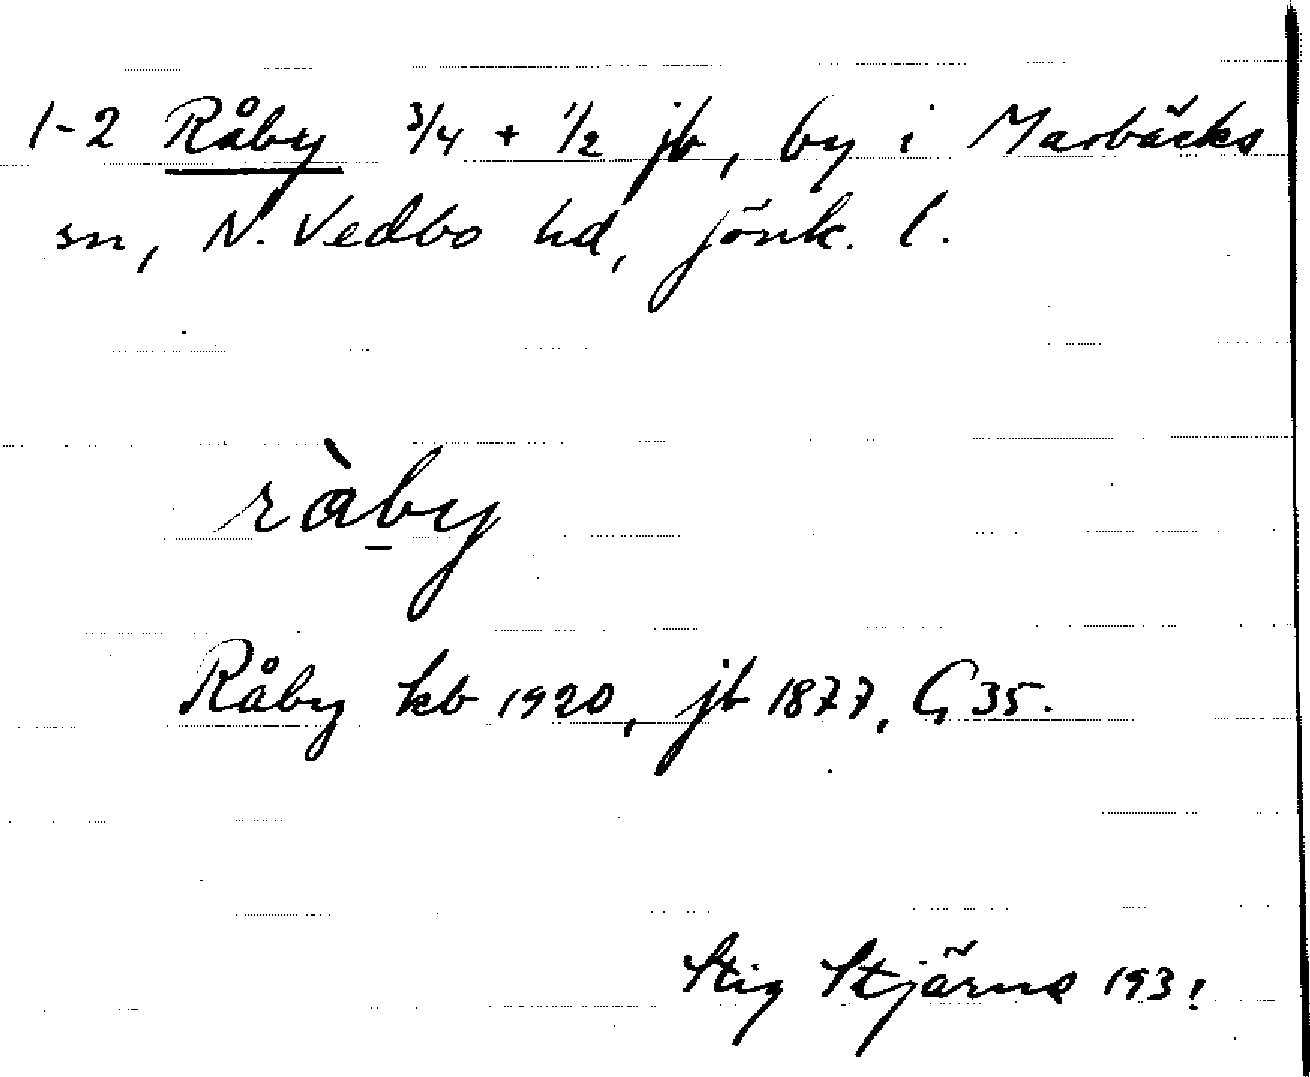 1-2 Råby 3/4 + 1/2 jb, by i Marbäcks
sn, N. Vedbo hd, Jönk. l.
ràby
Råby kb 1920, jb 1877, G 35.
Stig Stjärne 1931